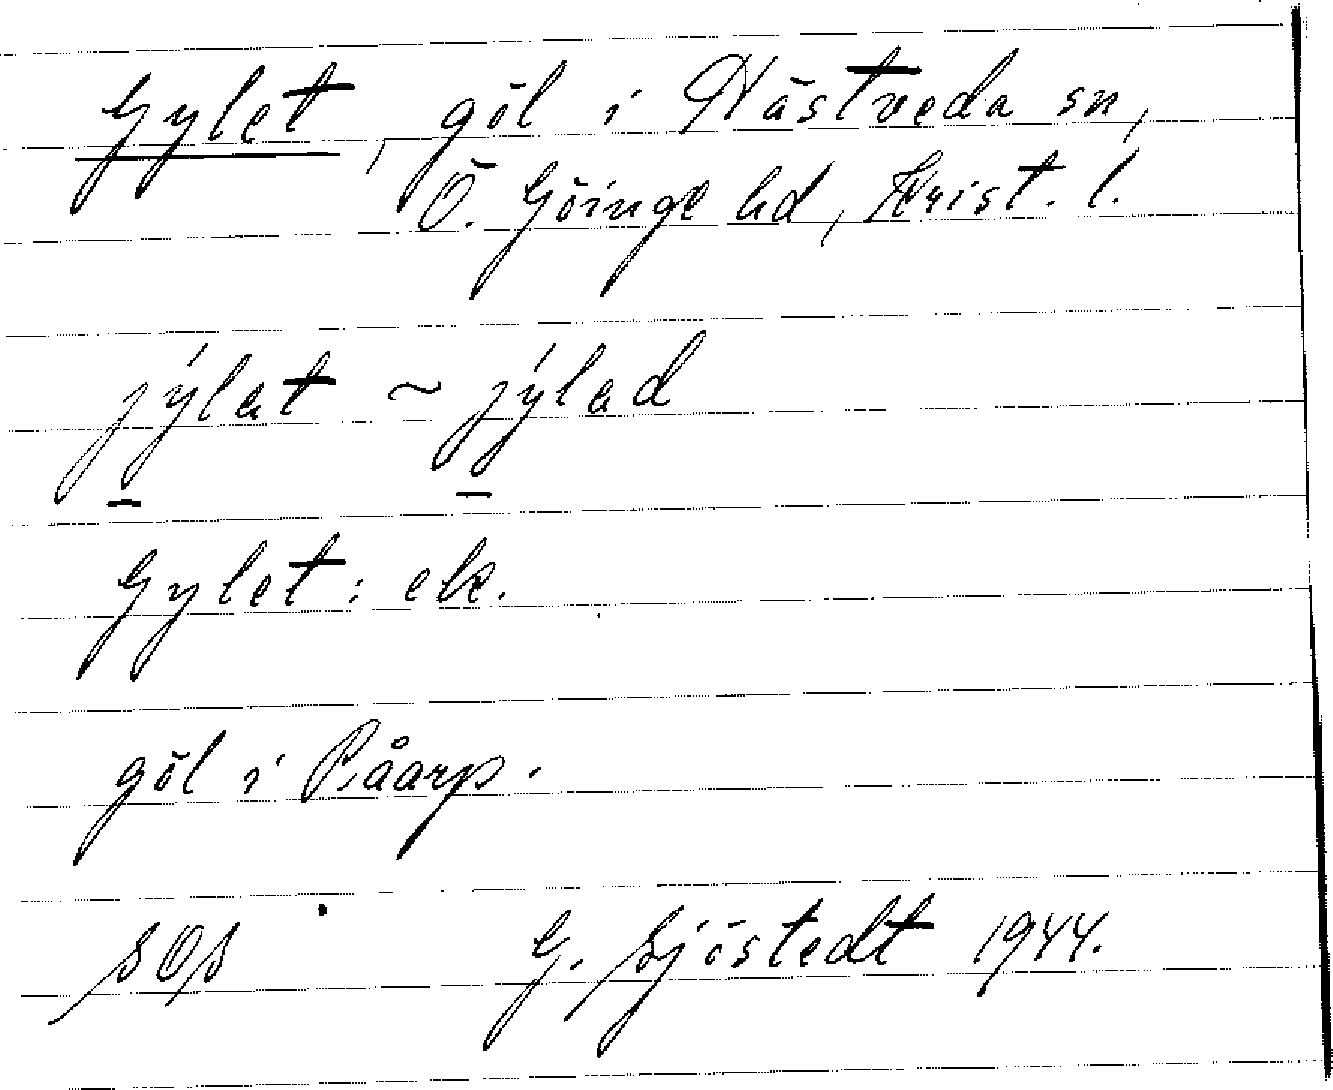 Gylet, göl i Hästveda sn,
Ö. Göinge hd, Krist. l.
jýlet ~ jýled
Gylet: ek.
göl i Råarp.
SOS G. Sjöstedt 1944.